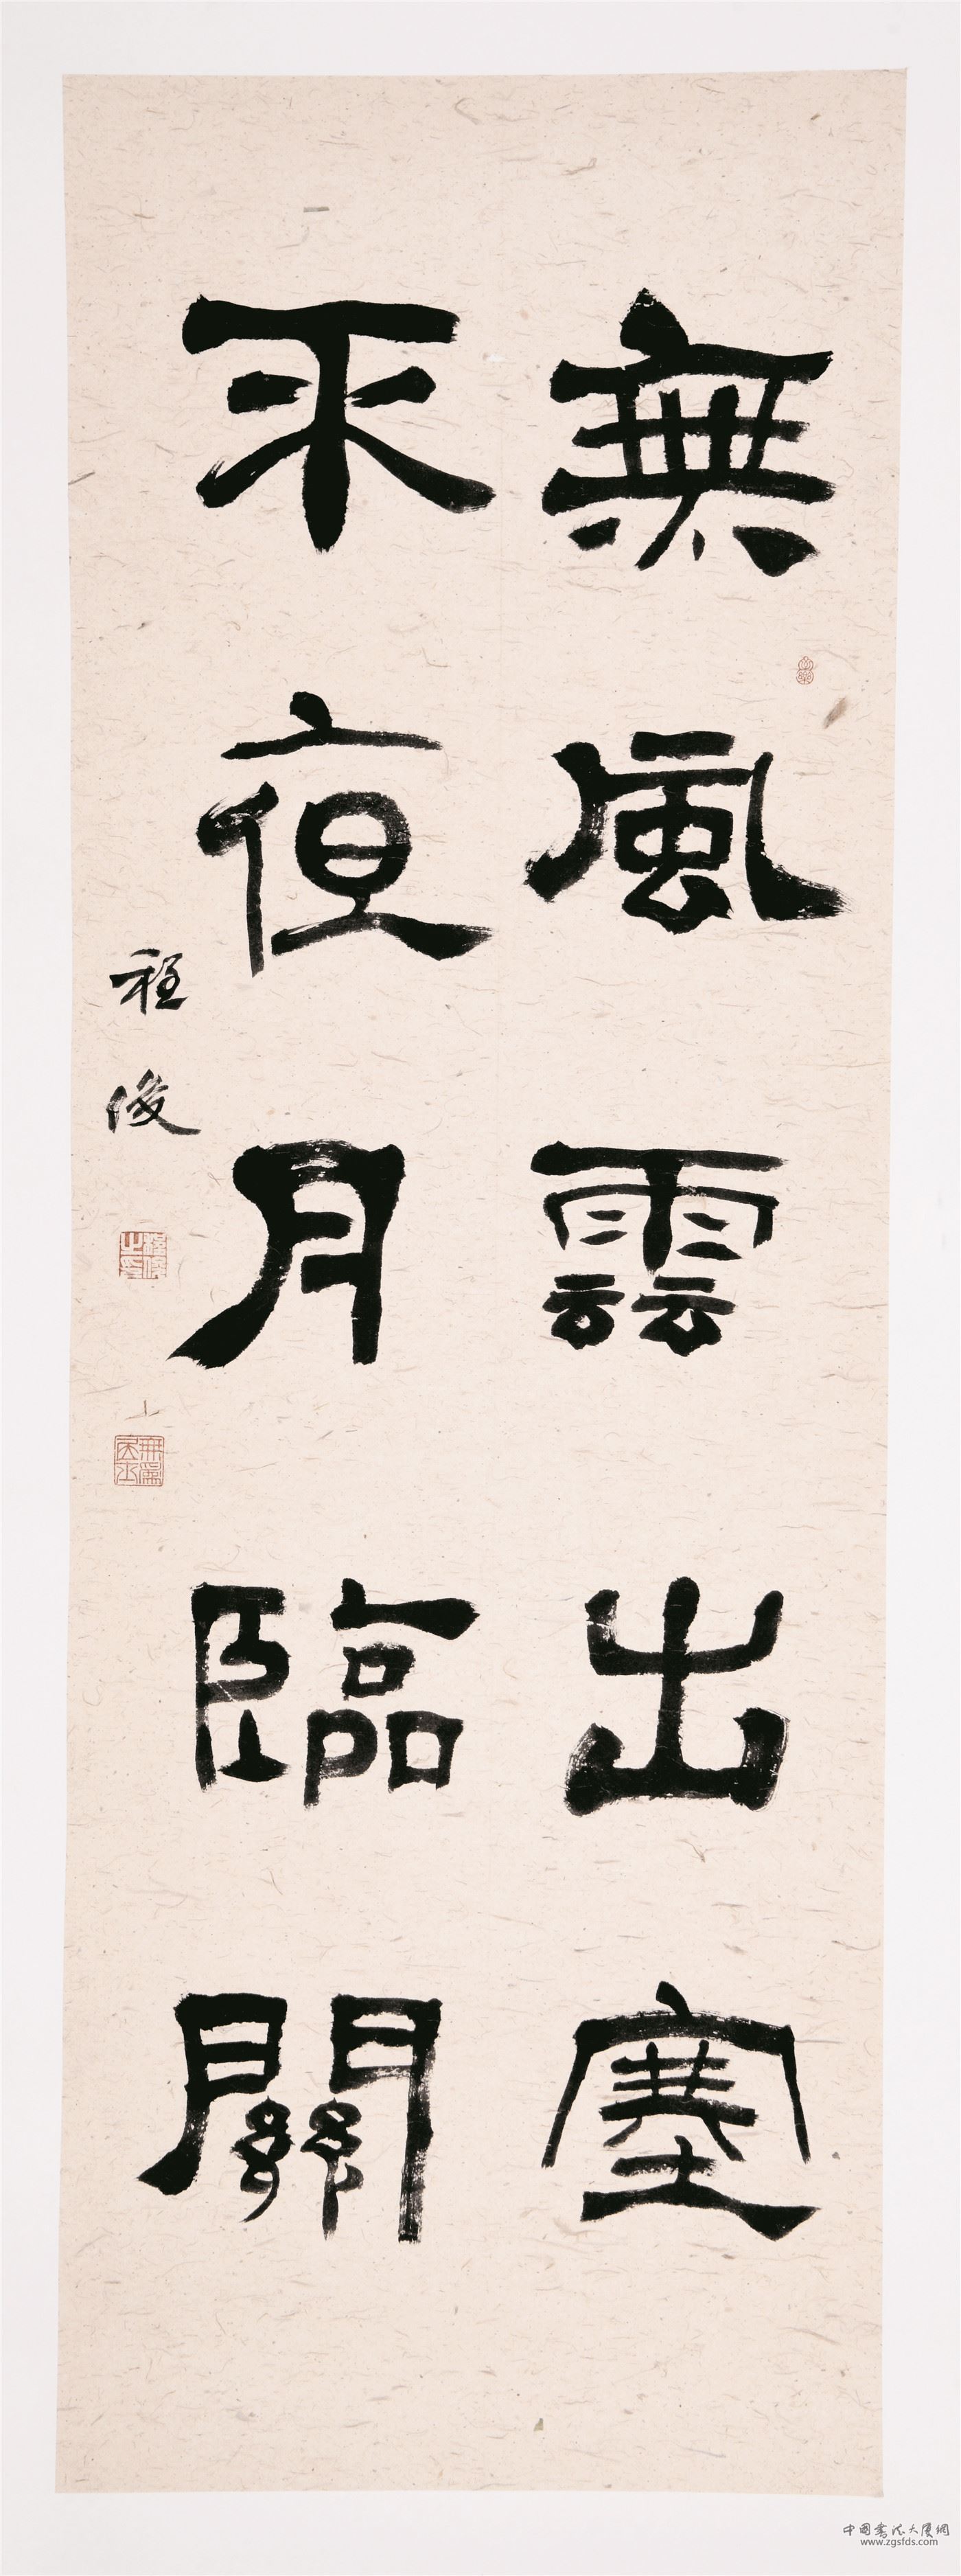 無風雲出塞
不夜月臨關
程俊
中国书法大厦網
www.zgsfds.com